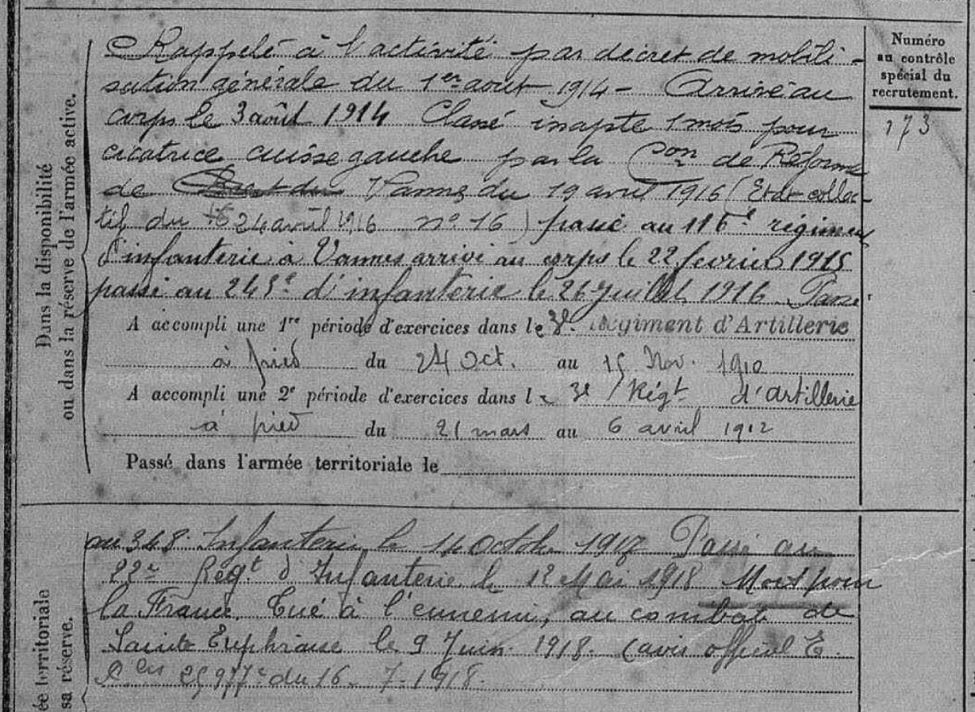 Dans la disponibilité
ou dans la réserve de l'armée active.
Rappelé à l'activité par décret de mobili-
sation générale du 1er août 1914 - Arrivé au
corps le 3 août 1914 Classé inapte 1 mois pour
cicatrice cuisse gauche par la Con de Réforme
de Vannes du 19 avril 1916 (Etat collec-
tif du 24 avril 1916 no 16) passé au 116e régiment
d'infanterie à Vannes arrivé au corps le 22 fevrier 1915
passé au 243e d'infanterie le 26 Juillet 1916 Passé
A accompli une 1re période d'exercices dans le 3e Régiment d'Artillerie
à pied du 24 Oct. au 15 Nov. 1910
A accompli une 2e période d'exercices dans le 3e Régt d'Artillerie
à pied du 21 mars au 6 avril 1912
Passé dans l'armée territoriale le
Numéro
au contrôle
spécial du
recrutement.
173
ée territoriale
sa réserve.
au 348 Infanterie le 14 Octobre 1917 Passé au
22e Régt d'Infanterie le 12 Mai 1918 Mort pour
la France. Tué à l'ennemi, au combat de
Sainte Euphraise le 9 Juin 1918. (avis officiel E.
25977 du 16-7-1918.